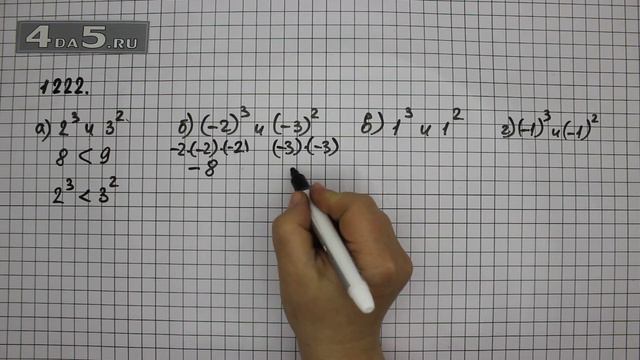 4DA5.RU
1222.
а) 2³ и 3²
8 < 9
2³ < 3²
б) (-2)³ и (-3)²
-2·(-2)·(-2) (-3)·(-3)
-8
в) 1³ и 1²
г) (-1)³ и (-1)²